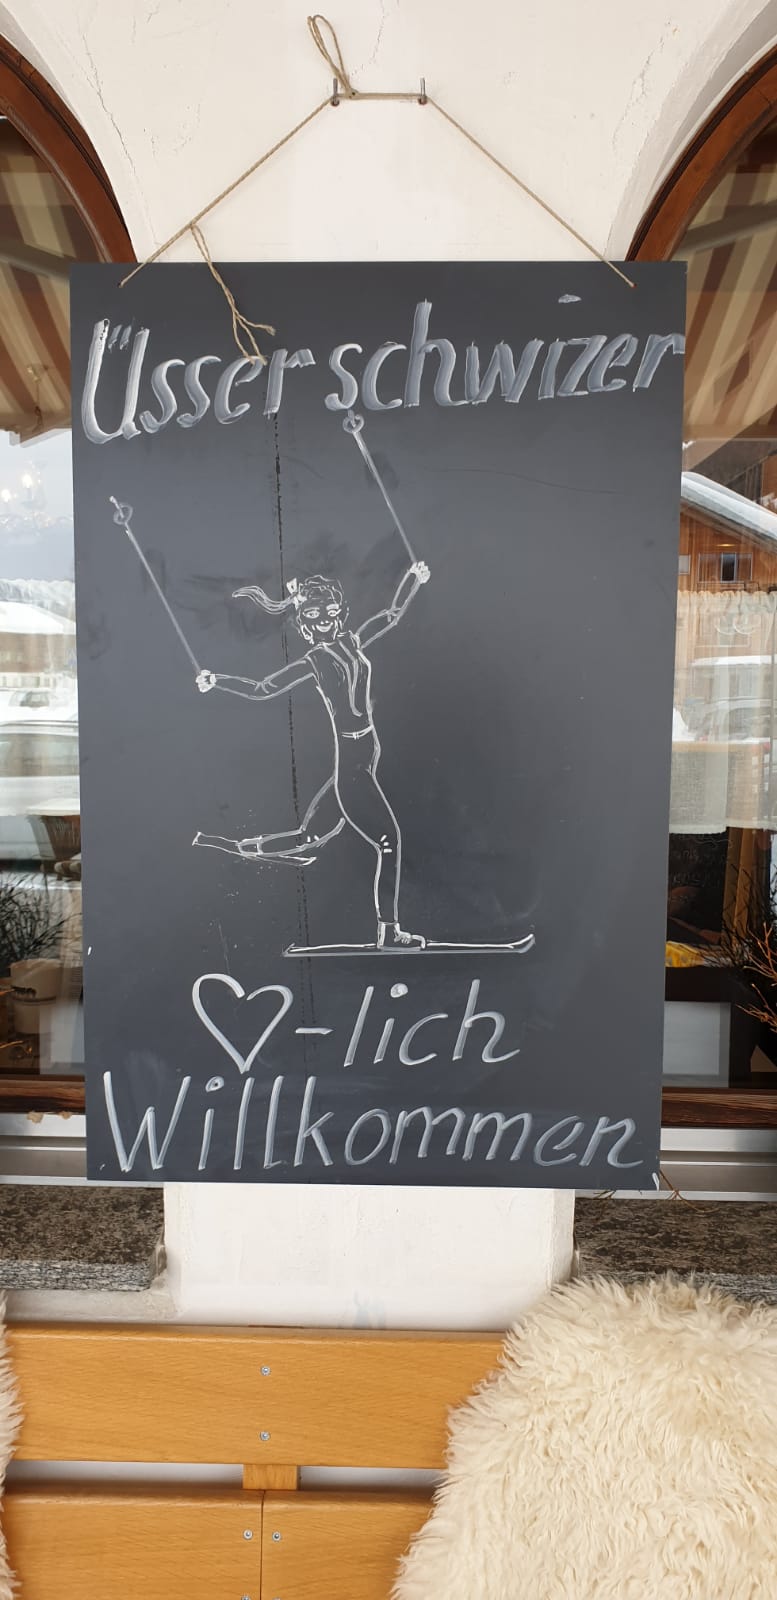 Üsserschwizer
♡-lich
Willkommen